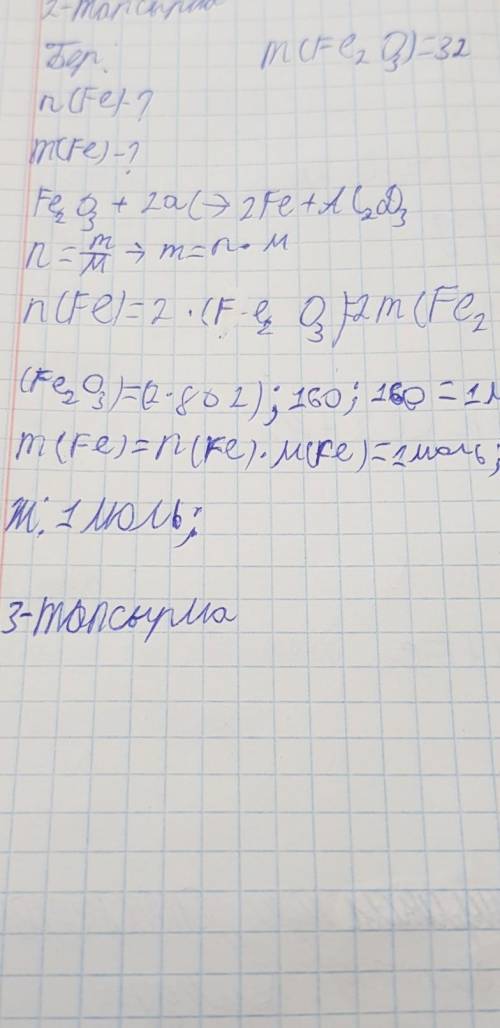 2-топсырма
Бер: m(Fe₂O₃)=32
n(Fe)-?
m(Fe)-?
Fe₂O₃ + 2al→ 2Fe+Al₂O₃
n = m/M → m=n·M
n(Fe)=2·(Fe₂ O₃)=2m(Fe₂
(Fe₂O₃)=(2·80г); 160; 160 = 1м
m(Fe)=n(Fe)·M(Fe)=1моль;
Ж: 1 моль;
3-топсырма